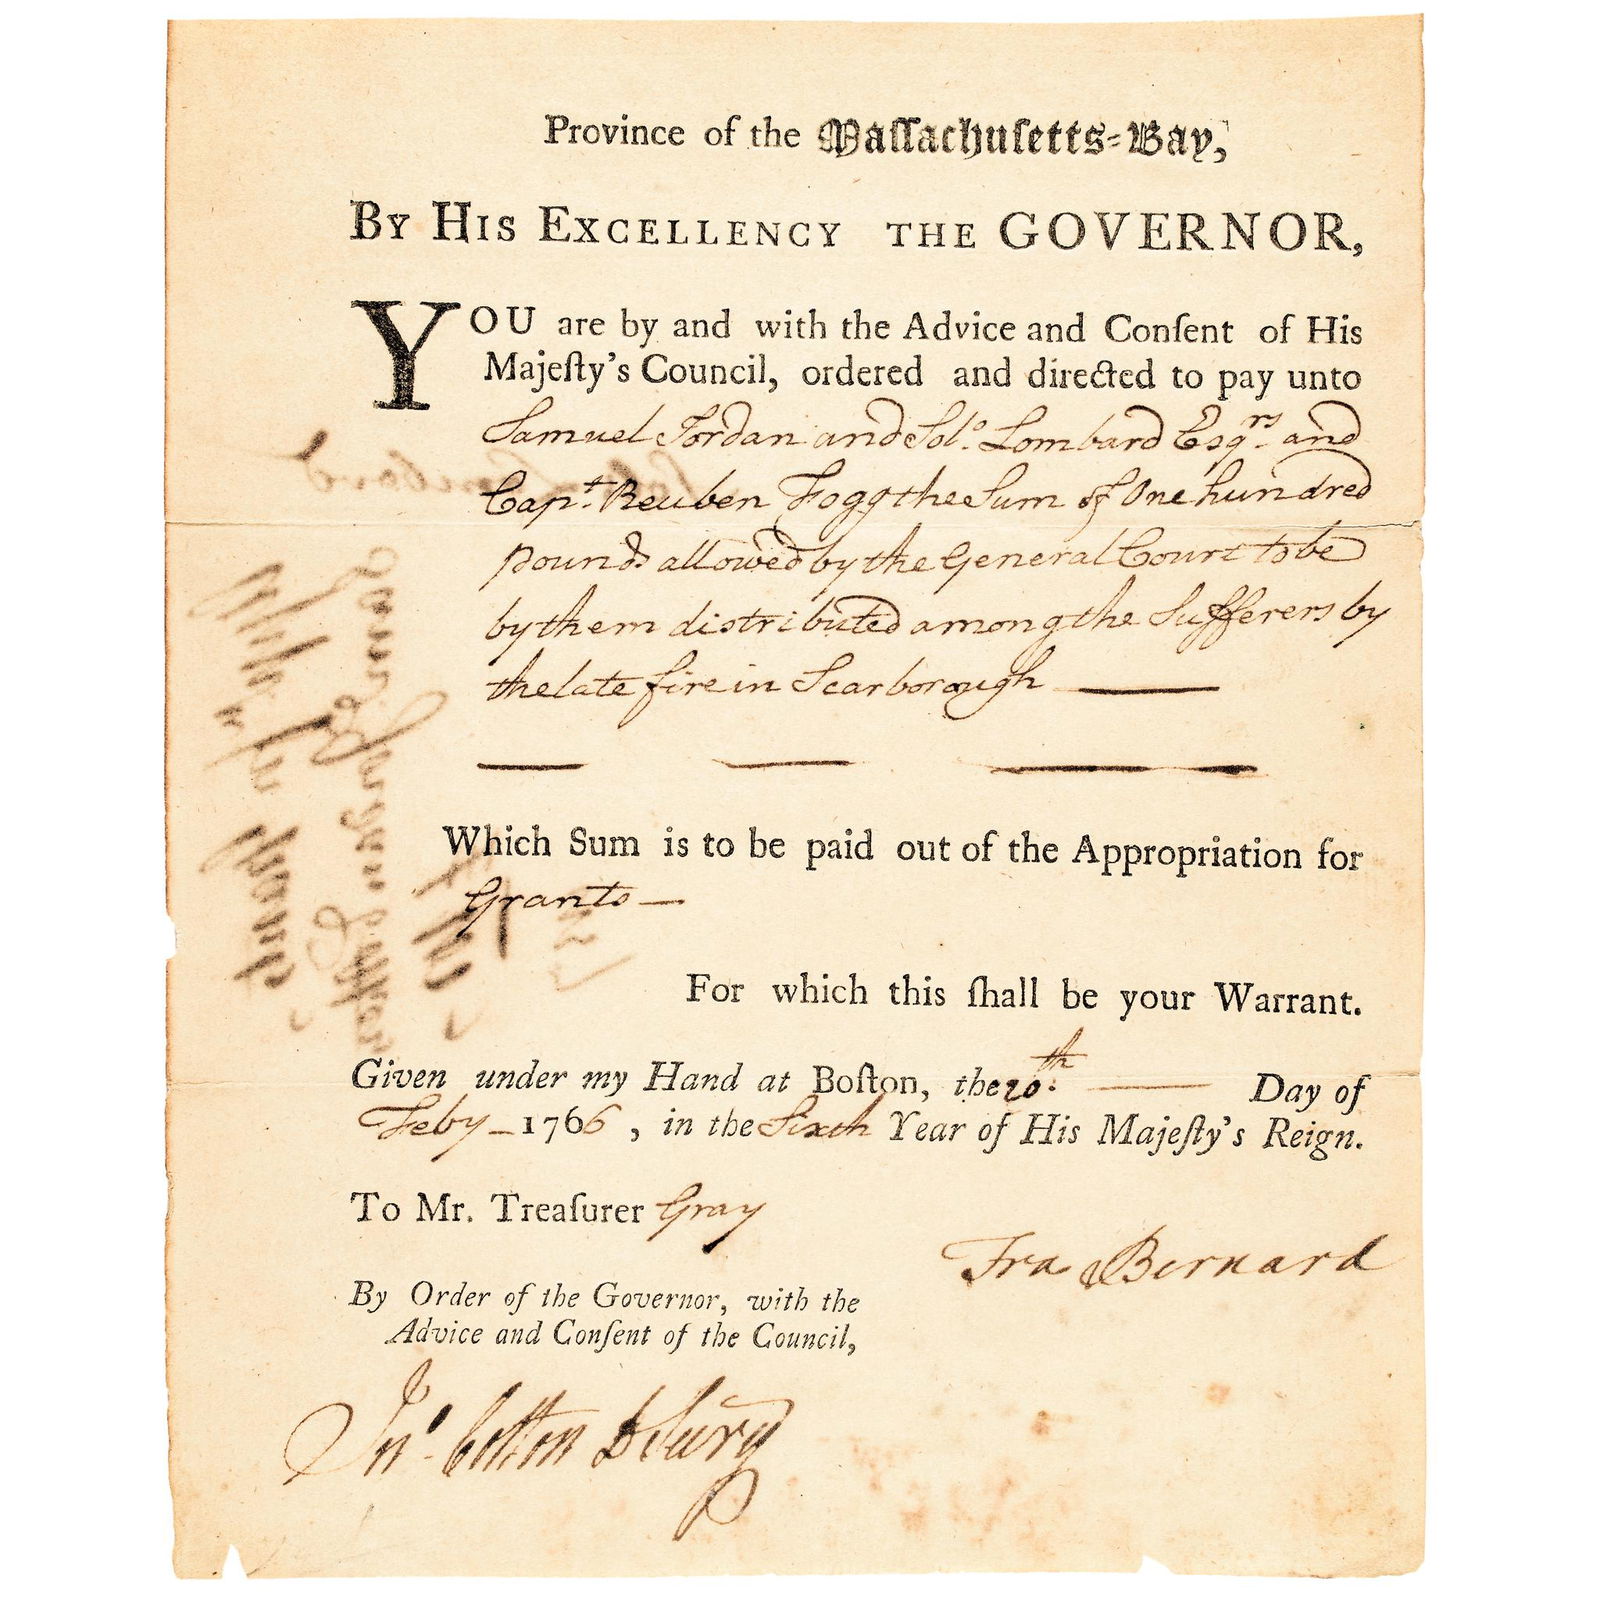 Province of the Maſſachuſetts-Bay,
BY HIS EXCELLENCY THE GOVERNOR,
YOU are by and with the Advice and Conſent of His
Majeſty's Council, ordered and directed to pay unto
Samuel Jordan and Sol.o Lombard Esq.rs and
Cap.t Reuben Fogg the Sum of One hundred
pounds allowed by the General Court to be
by them distributed among the Sufferers by
the late fire in Scarborough
Which Sum is to be paid out of the Appropriation for
Grants
For which this ſhall be your Warrant.
Given under my Hand at Boſton, the 20.th Day of
Feby 1766, in the Sixth Year of His Majeſty's Reign.
To Mr. Treaſurer Gray
Fra Bernard
By Order of the Governor, with the
Advice and Conſent of the Council,
Jn.o Cotton D Secry